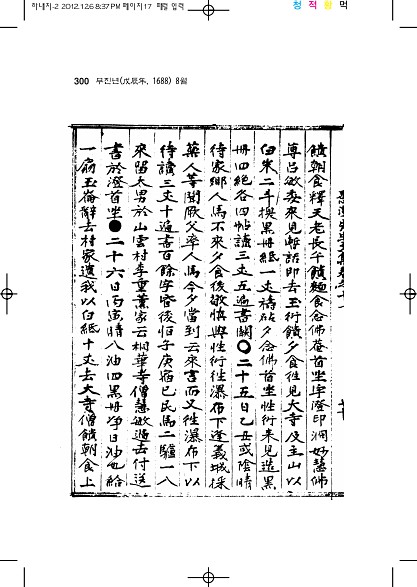 2012.12.6 8:37 PM 페이지17
청 적 황 먹
300 무진년(戊辰年, 1688) 8월
饋朝食釋天老長午饋麵食念佛菴首坐宇澄印洞妙慧佛
尊呂欲來見暫話即去玉衍饋夕食往見大寺及主山以
白米二斗換黑冊紙一丈夕念佛首坐性衍來見造黑
冊四絶各四帖讀三丈五遍書○二十五日乙丑或陰晴
待家鄕人馬不來夕食後敬愼與性衍往瀑布下逢義城採
藥人等聞厥父率人馬今夕當到云來言而又往瀑布下以
待讀三丈十遍書百餘字後恒子庚民馬二驢一八
來留太男於山雲村李重葉家云桐華寺僧慧敏過去付送
書於澄首坐●二十六日丙寅晴油四黑冊淨日油也給
一扇玉崙辭去村家遺我以白紙十丈去大寺僧饋朝食上